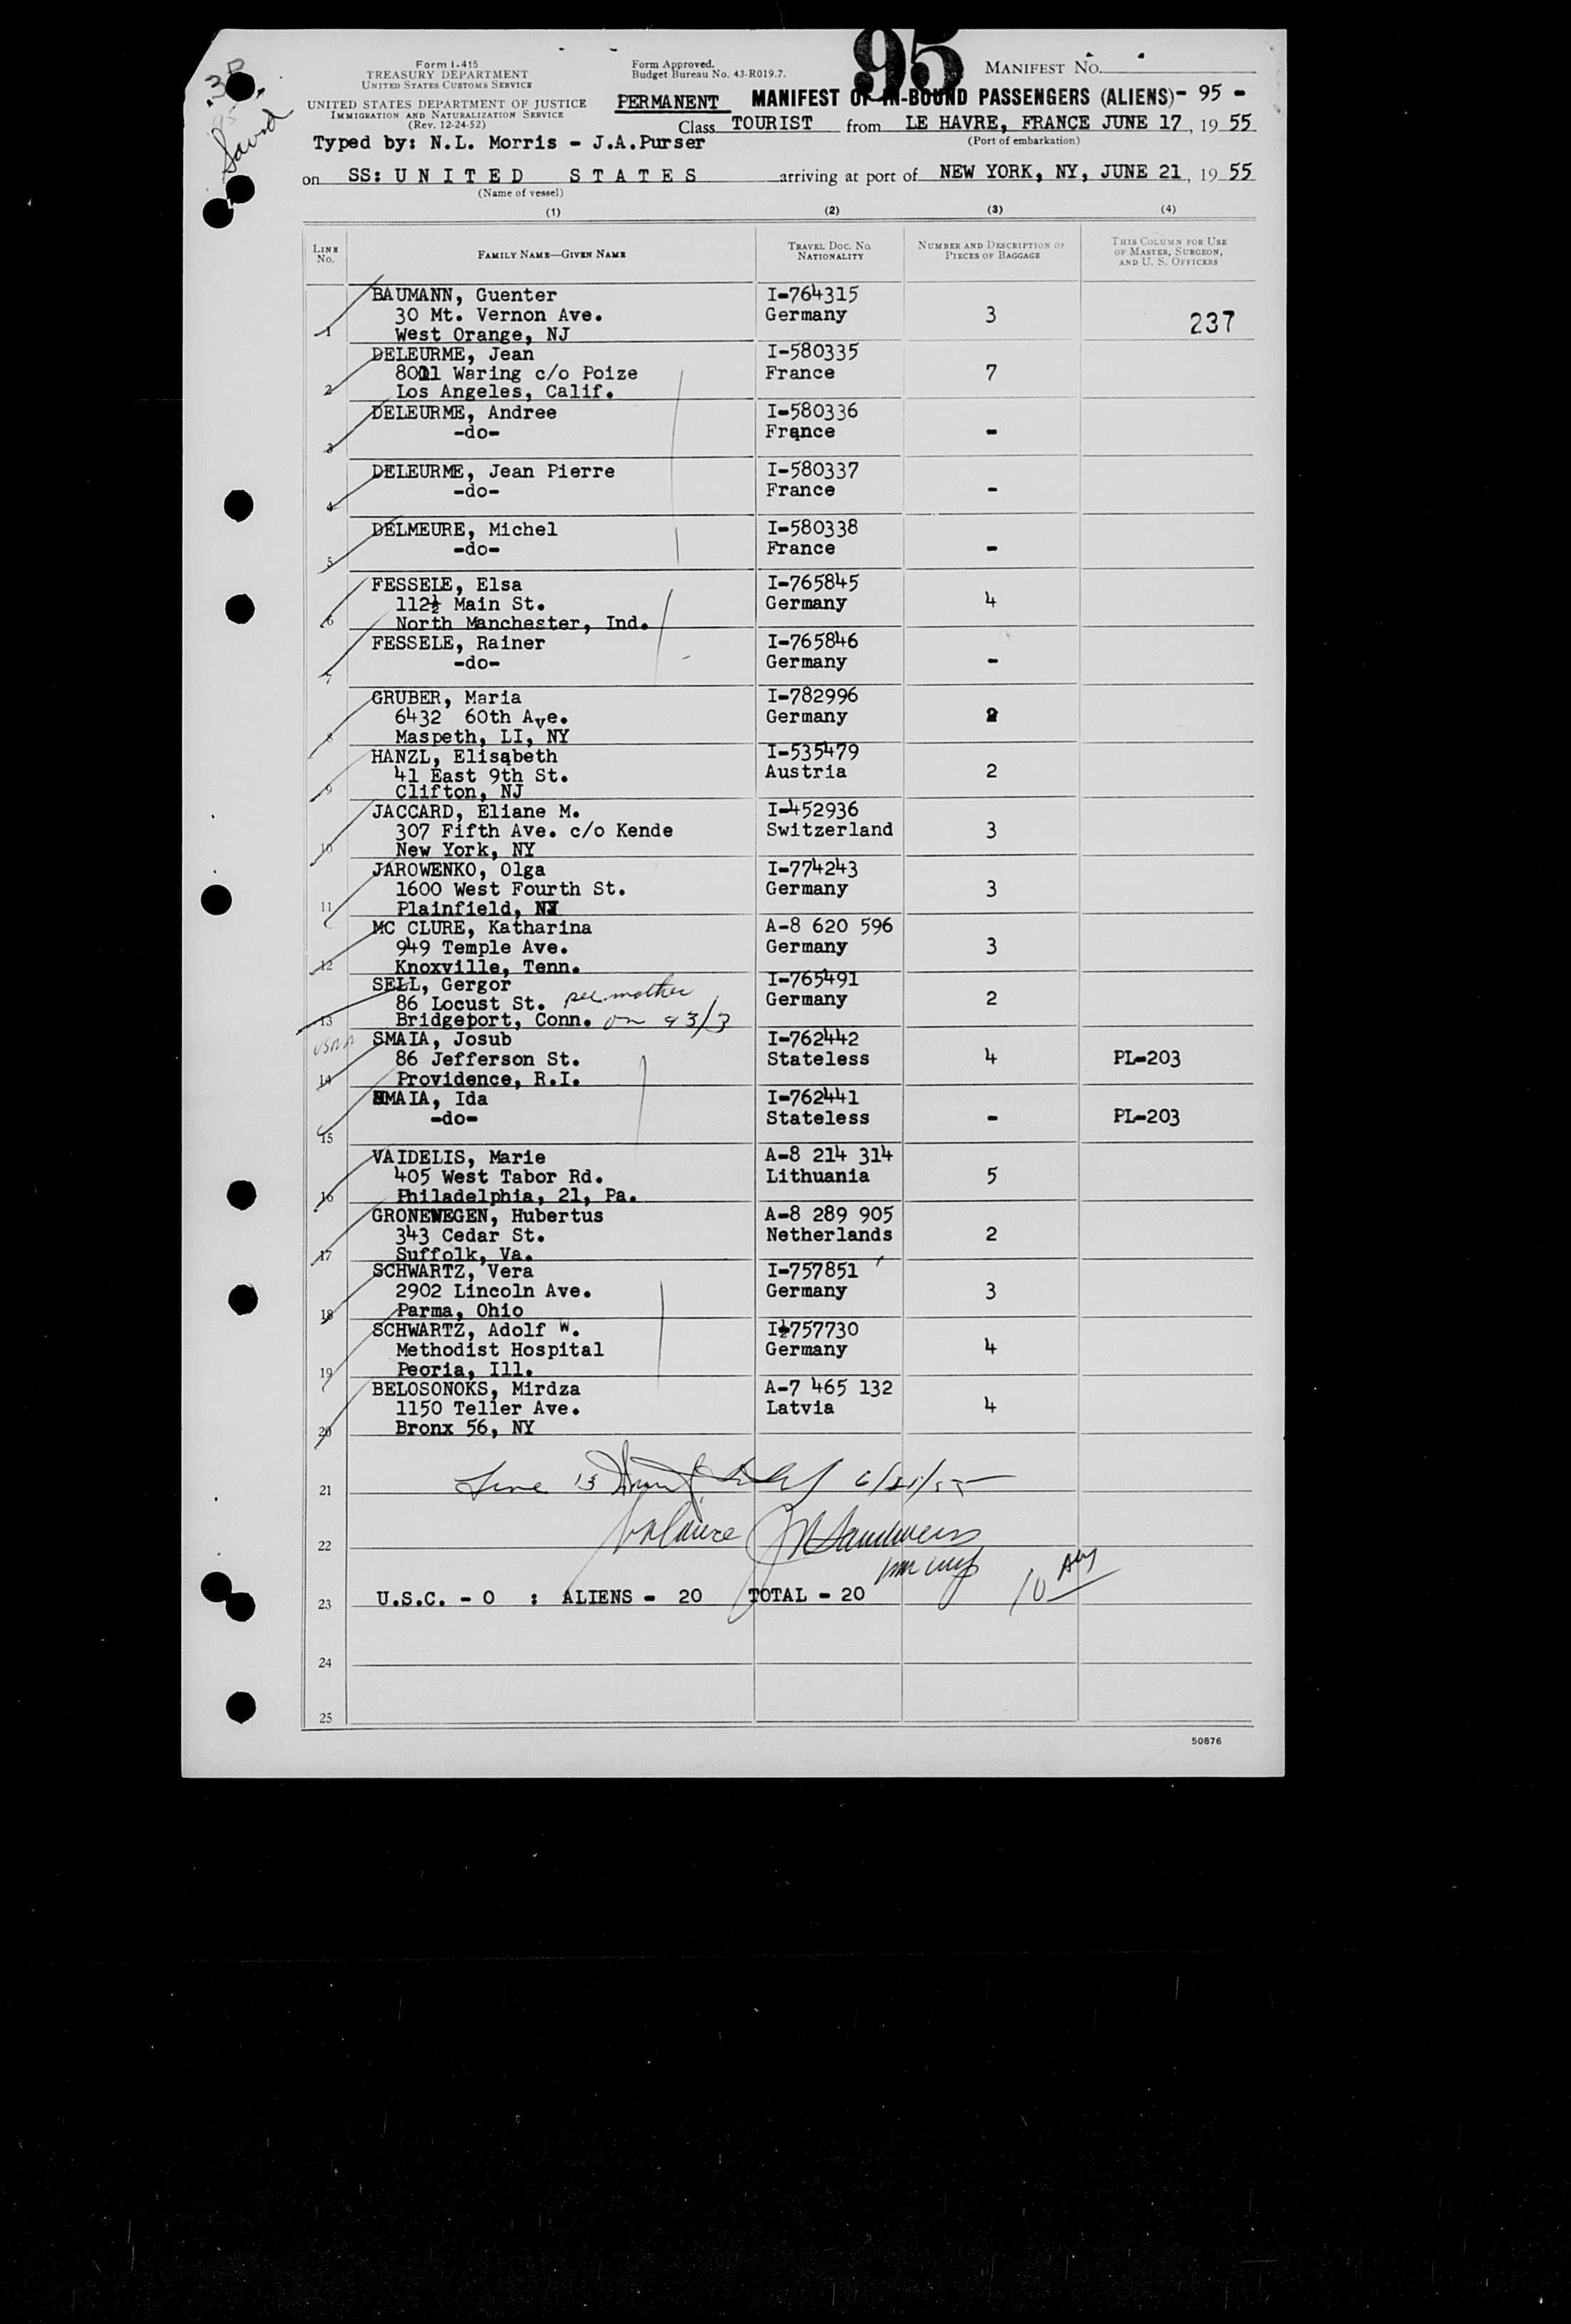 95
Form I-415
TREASURY DEPARTMENT
UNITED STATES CUSTOMS SERVICE
Form Approved.
Budget Bureau No. 43-R019.7.
MANIFEST No.
UNITED STATES DEPARTMENT OF JUSTICE
IMMIGRATION AND NATURALIZATION SERVICE
(Rev. 12-24-52)
PERMANENT MANIFEST OF IN-BOUND PASSENGERS (ALIENS) - 95 -
Class TOURIST from LE HAVRE, FRANCE JUNE 17, 19 55
(Port of embarkation)
Typed by: N.L. Morris - J.A.Purser
on SS: UNITED STATES arriving at port of NEW YORK, NY, JUNE 21, 19 55
(Name of vessel)
(1) (2) (3) (4)
LINE No. FAMILY NAME—GIVEN NAME TRAVEL DOC. No. NATIONALITY NUMBER AND DESCRIPTION OF PIECES OF BAGGAGE THIS COLUMN FOR USE OF MASTER, SURGEON, AND U. S. OFFICERS
BAUMANN, Guenter I-764315
30 Mt. Vernon Ave. Germany 3 237
1 West Orange, NJ
DELEURME, Jean I-580335
8011 Waring c/o Poize France 7
2 Los Angeles, Calif.
DELEURME, Andree I-580336
-do- France -
3
DELEURME, Jean Pierre I-580337
-do- France -
4
DELMEURE, Michel I-580338
-do- France -
5
FESSELE, Elsa I-765845
112½ Main St. Germany 4
6 North Manchester, Ind.
FESSELE, Rainer I-765846
-do- Germany -
7
GRUBER, Maria I-782996
6432 60th Ave. Germany 2
8 Maspeth, LI, NY
HANZL, Elisabeth I-535479
41 East 9th St. Austria 2
9 Clifton, NJ
JACCARD, Eliane M. I-452936
307 Fifth Ave. c/o Kende Switzerland 3
10 New York, NY
JAROWENKO, Olga I-774243
1600 West Fourth St. Germany 3
11 Plainfield, NJ
MC CLURE, Katharina A-8 620 596
949 Temple Ave. Germany 3
12 Knoxville, Tenn.
SELL, Gergor I-765491
86 Locust St. see mother Germany 2
13 Bridgeport, Conn. on 93/3
SMAIA, Josub I-762442
86 Jefferson St. Stateless 4 PL-203
14 Providence, R.I.
SMAIA, Ida I-762441
-do- Stateless - PL-203
15
VAIDELIS, Marie A-8 214 314
405 West Tabor Rd. Lithuania 5
16 Philadelphia, 21, Pa.
GRONEWEGEN, Hubertus A-8 289 905
343 Cedar St. Netherlands 2
17 Suffolk, Va.
SCHWARTZ, Vera I-757851
2902 Lincoln Ave. Germany 3
18 Parma, Ohio
SCHWARTZ, Adolf W. I-757730
Methodist Hospital Germany 4
19 Peoria, Ill.
BELOSONOKS, Mirdza A-7 465 132
1150 Teller Ave. Latvia 4
20 Bronx 56, NY
21 Line 13 6/21/55
22 balance
23 U.S.C. - 0 : ALIENS - 20 TOTAL - 20 10
24
25
50876